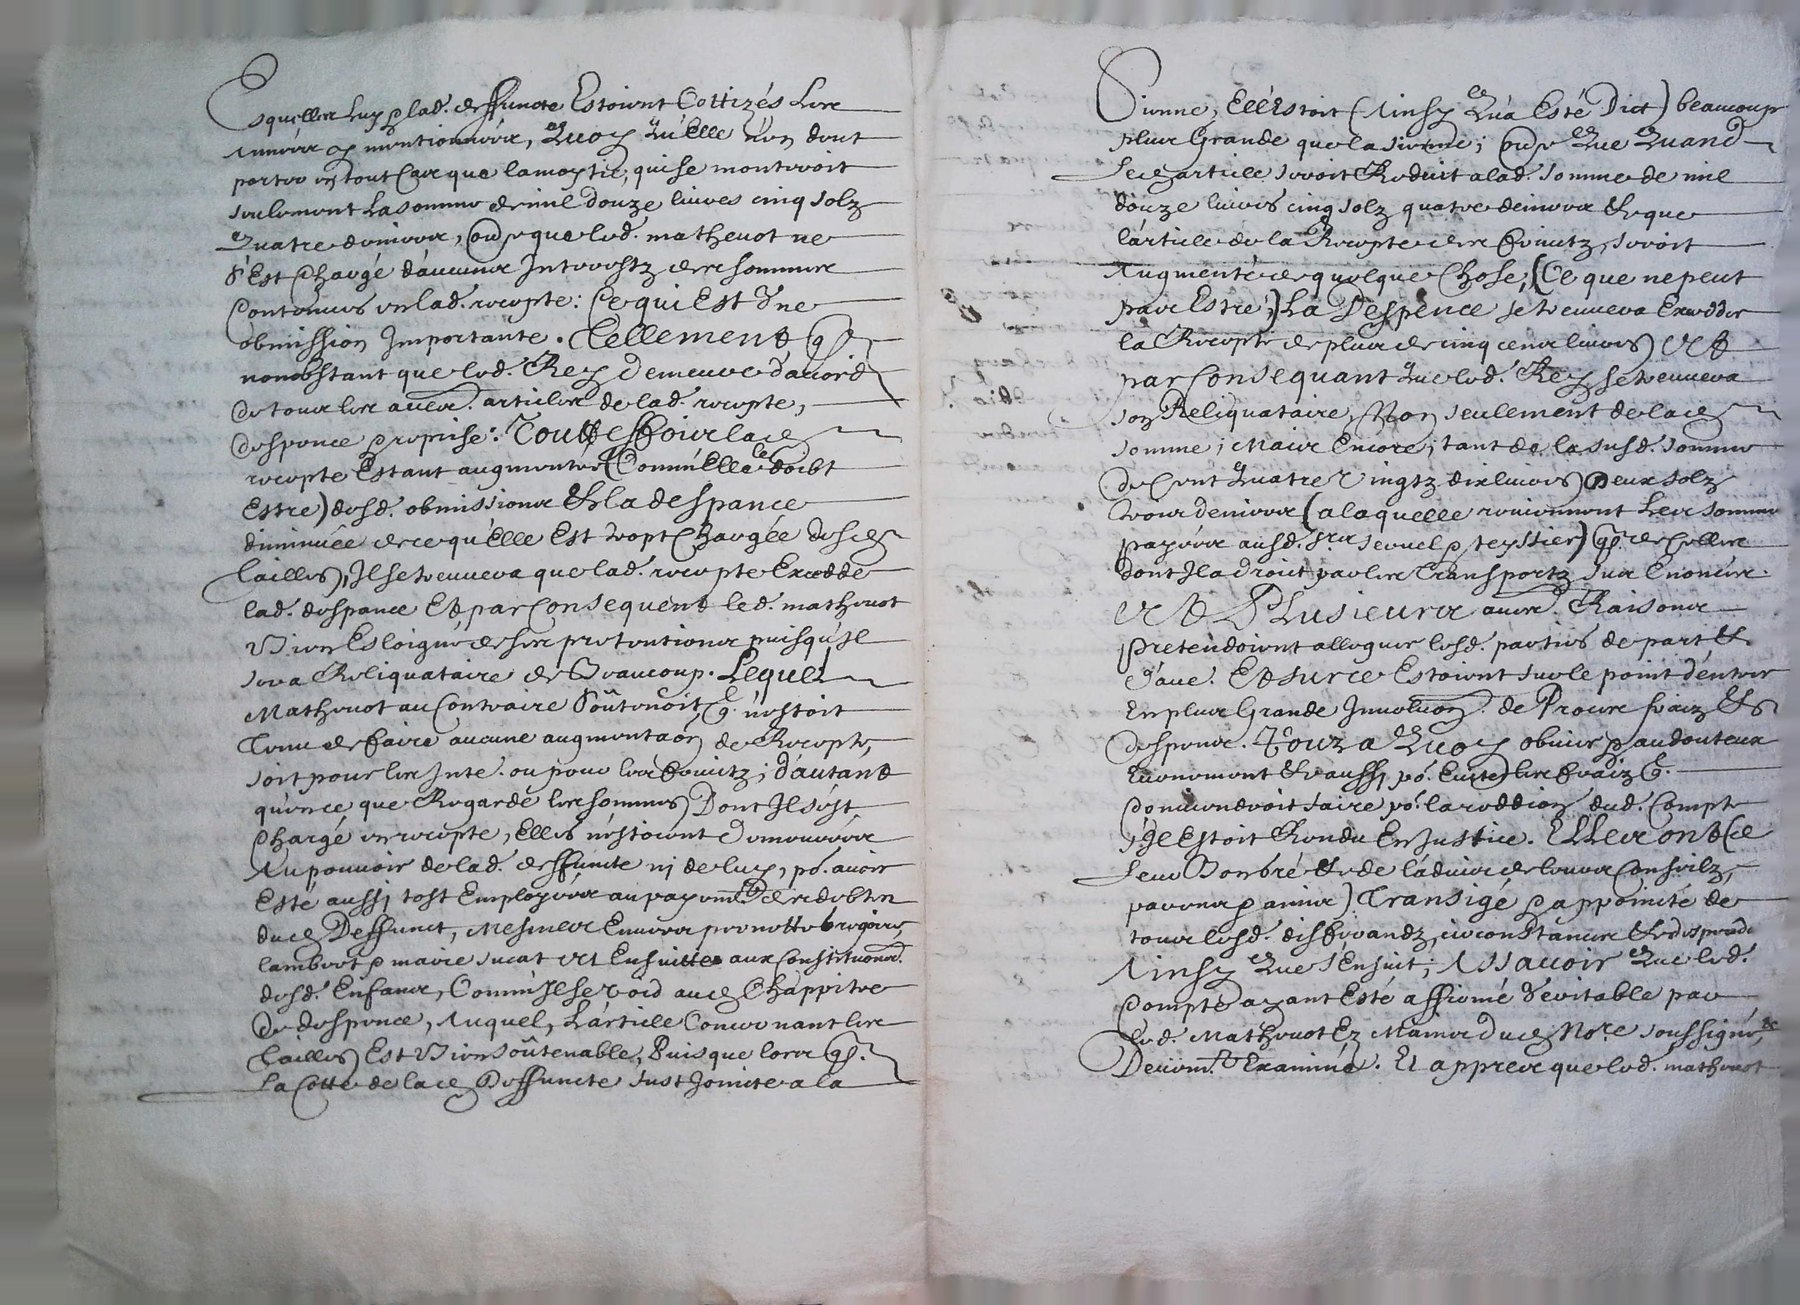 Esquelles luy & lad. deffuncte Estoient Cottizés Les
Années y mentionnées, Quoy Qu'Elle n'en doibt
porter en tout Cas que la moytié, qui se monteroit
seulement La somme de mil douze livres cinq solz
Quatre deniers, & que led. mathevot ne
S'Est Chargé d'aucuns Interestz des sommes
Contenues en lad. recepte: Ce qui Est Une
obmission Importante. Tellement q
nonobstant que led. Rey Demeure d'accord
de tous les aues. articles de lad. recepte,
despence & reprise: Touttesfois lad
recepte Estant augmentée (Comm'Elle doibt
Estre) desd. obmissions Et la despance
diminuée de ce qu'Elle Est trop Chargée desd
tailles, Il se treuvera que lad. recepte Excedde
lad. despance Et par Consequent led. mathevot
Bien Esloigné de ses pretentions puisqu'Il
sera Reliquataire de Beaucoup. Lequel
Mathevot au Contraire Soûtenoit q. n'estoit
Tenu de faire aucune augmentaon de Recepte,
soit pour les Inte. ou pour les fruictz; d'autant
qu'en ce que Regarde les sommes Dont Il s'est
Chargé en recepte, Elles n'estoient Demeurées
Au pouvoir de lad. deffuncte ni de luy, po. avoir
Esté aussi tost Employées au payemt. des debtes
dud Deffunct, Mesmes Envers pernotte brigoire,
lambert & marie sucat Et Ensuitte aux Constitutions
desd. Enfans, Comm'Il se void aud Chappitre
de despence, Auquel, L'article Concernant les
tailles Est Bien soûtenable, Puisque lors q.
La Cotte de lad Deffuncte fust Joincte a la
Sienne, Ell'Estoit (Ainsy Qu'a Esté Dict) beaucoup
plus Grande que la sienne; & Que Quand
Led article seroit Reduit a lad. somme de mil
douze livres cinq solz quatre deniers Et que
l'article de la Recepte des fruictz, seroit
Augmenté de quelque Chose, (Ce que ne peut
pas Estre;) La Despence se treuvera Excedder
la Recepte de plus de cinq cens livres, Et
par Consequant Que led. Rey se treuvera
son Reliquataire, Non seulement de lad
somme; Mais Encore; tant de la susd. somme
de Cent Quatre Vingtz dix livres Deux solz
trois deniers (a laquelle reviennent Les sommes
payées ausd. Srs seruel & teyssier) q. de Celles
dont Il a Droict par les Transportz sus Enoncés.
Et Plusieurs aues. Raisons
pretendoient alleguer lesd. parties de part Et
d'aue. Et sur ce Estoient sur le point d'entrer
En plus Grande Involuon. de Proces fraiz Et
despence. Pour a Quoy obvier & au douteux
Evenement Et aussi po. Eviter les fraiz q.
Conviendroit faire po. la reddion dud. Compte
s'Il Estoit Rendu En Justice. Elles ont (De
Leur Bon gré Et de l'advis de leurs Conseilz,
parens & amis) Transigé & appoincté de
tous lesd. differandz, circonstances Et despendces
Ainsy Que S'Ensuit; Assavoir Que led.
Compte ayant Esté affirmé Veritable par
led. Mathevot Ez Mains dud No.re soussigné, Et
Deüem.t Examiné. Et appres que led. mathevot